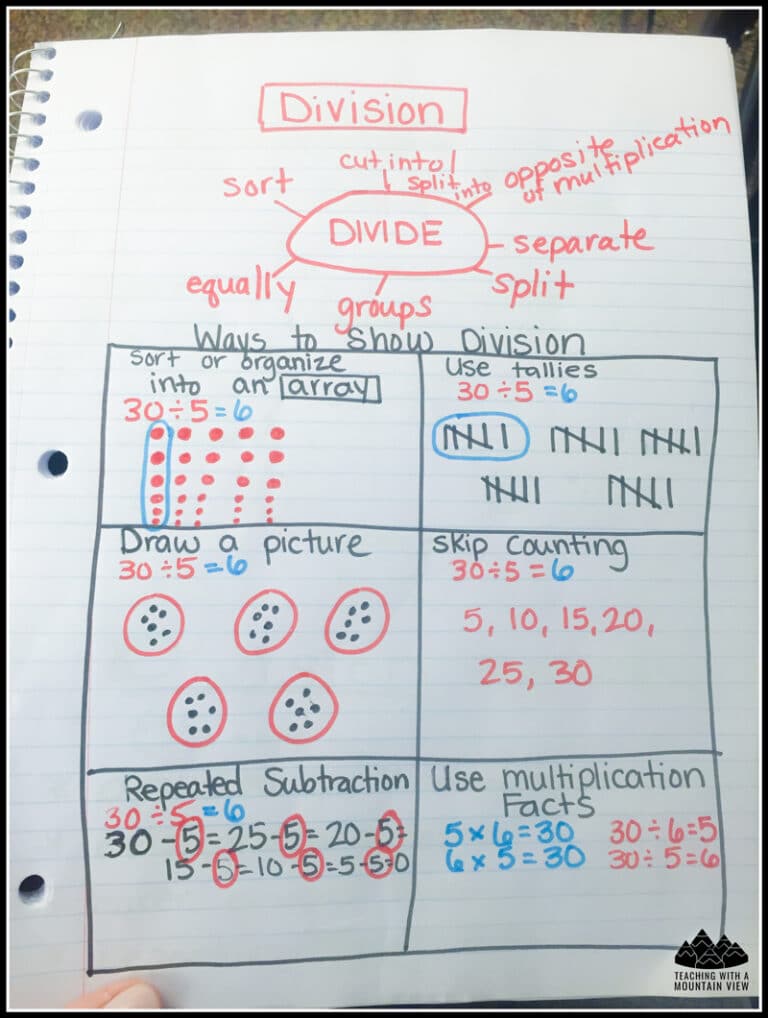 Division
cut into
sort
split into
opposite
of multiplication
DIVIDE
separate
equally
split
groups
Ways to Show Division
Sort or organize
into an array
30÷5=6
Use tallies
30÷5=6
Draw a picture
30÷5=6
Skip counting
30÷5=6
5, 10, 15, 20,
25, 30
Repeated Subtraction
30÷5=6
30-5=25-5=20-5=
15-5=10-5=5-5=0
Use multiplication
Facts
5×6=30 30÷6=5
6×5=30 30÷5=6
TEACHING WITH A
MOUNTAIN VIEW